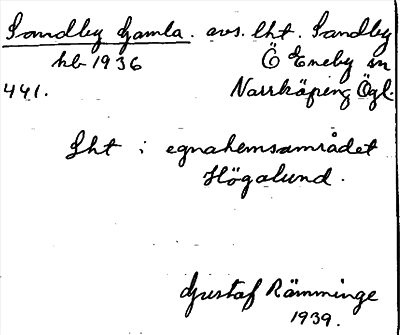 Sandby Gamla. avs. lht. Sandby
hb 1936 Ö Eneby sn
441. Norrköping Ögl.
Lht i egnahemsområdet
Högalund.
Gustaf Rämminge
1939.